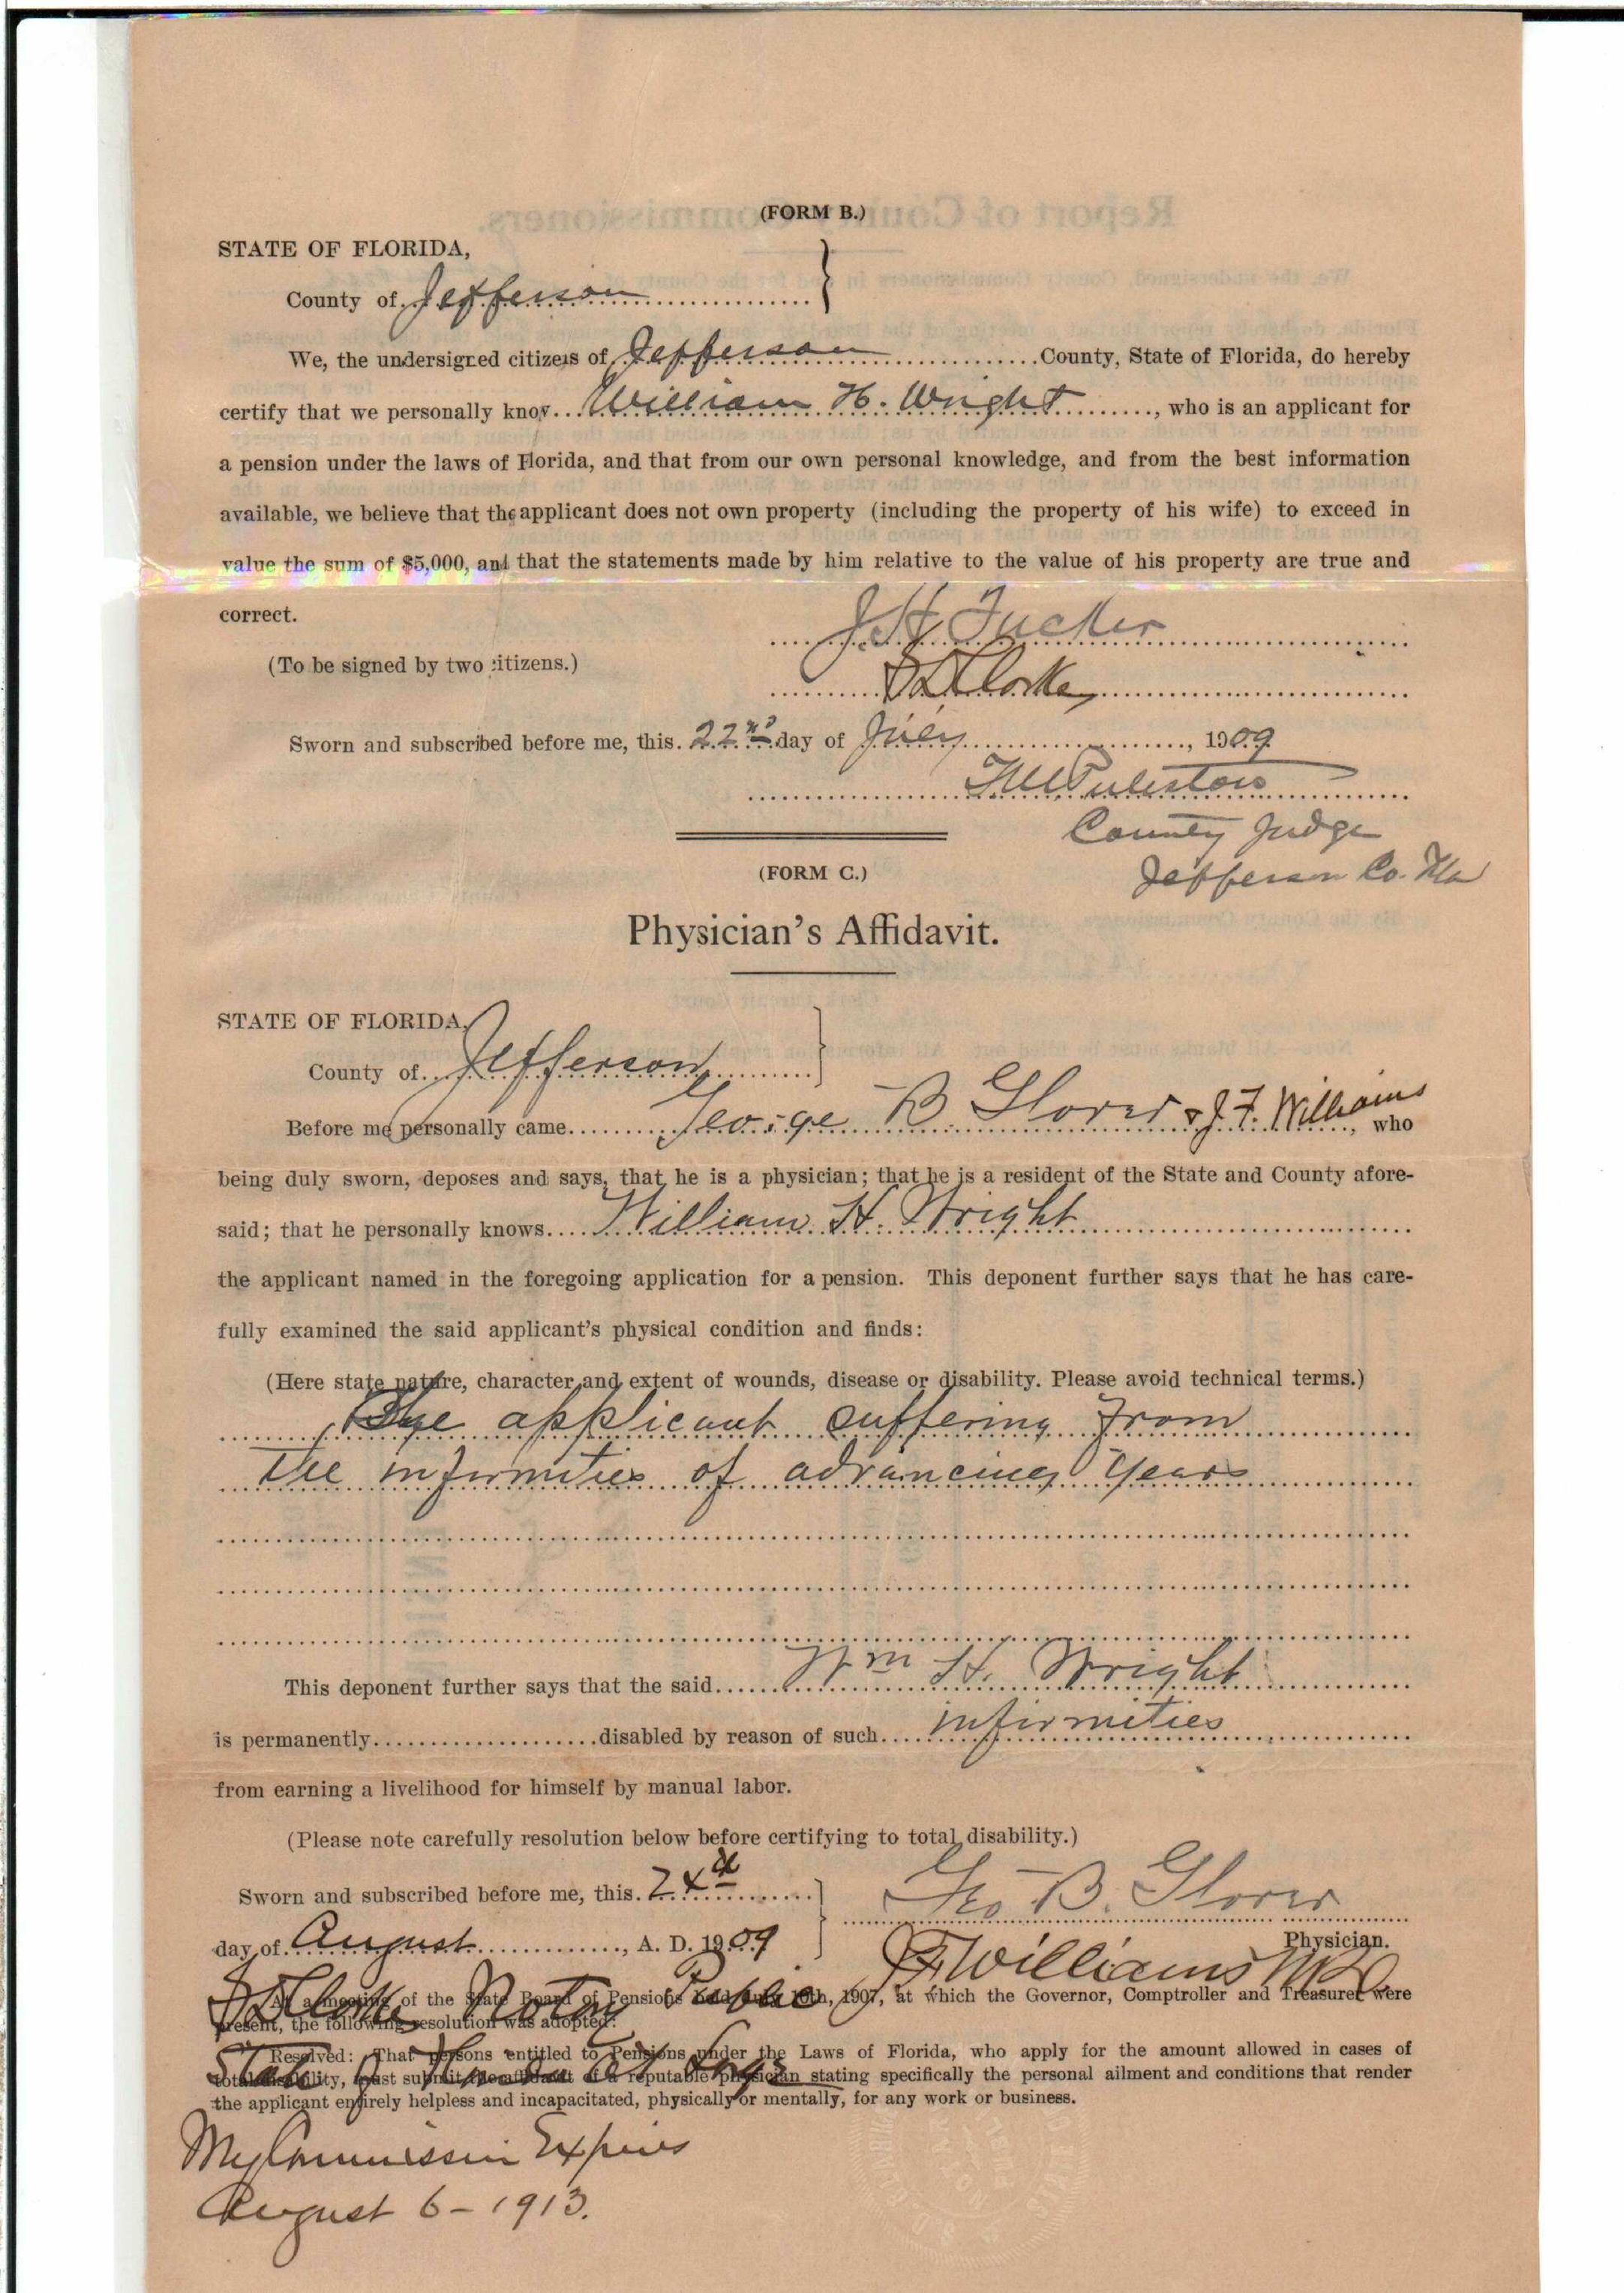 (FORM B.)
STATE OF FLORIDA,
County of Jefferson
We, the undersigned citizens of Jefferson County, State of Florida, do hereby
certify that we personally know William H. Wright, who is an applicant for
a pension under the laws of Florida, and that from our own personal knowledge, and from the best information
available, we believe that the applicant does not own property (including the property of his wife) to exceed in
value the sum of $5,000, and that the statements made by him relative to the value of his property are true and
correct.
J H Tucker
(To be signed by two citizens.)
Sworn and subscribed before me, this 22nd day of July, 1909
County Judge
(FORM C.)
Jefferson Co. Fla
Physician's Affidavit.
STATE OF FLORIDA,
County of Jefferson
Before me personally came George B Glover & J. F. Williams, who
being duly sworn, deposes and says, that he is a physician; that he is a resident of the State and County afore-
said; that he personally knows William H. Wright
the applicant named in the foregoing application for a pension. This deponent further says that he has care-
fully examined the said applicant's physical condition and finds:
(Here state nature, character and extent of wounds, disease or disability. Please avoid technical terms.)
applicant suffering from
the infirmities of advancing years
This deponent further says that the said Wm H. Wright
is permanently disabled by reason of such infirmities
from earning a livelihood for himself by manual labor.
(Please note carefully resolution below before certifying to total disability.)
Sworn and subscribed before me, this 24th
Geo B. Glover
Physician.
day of August, A. D. 1909
J F Williams MD
Notary Public
At a meeting of the State Board of Pensions held July 10th, 1907, at which the Governor, Comptroller and Treasurer were
present, the following resolution was adopted:
State of Florida at Large
Resolved: That persons entitled to Pensions under the Laws of Florida, who apply for the amount allowed in cases of
total disability, must submit the affidavit of a reputable physician stating specifically the personal ailment and conditions that render
the applicant entirely helpless and incapacitated, physically or mentally, for any work or business.
My Commission Expires
August 6 - 1913.